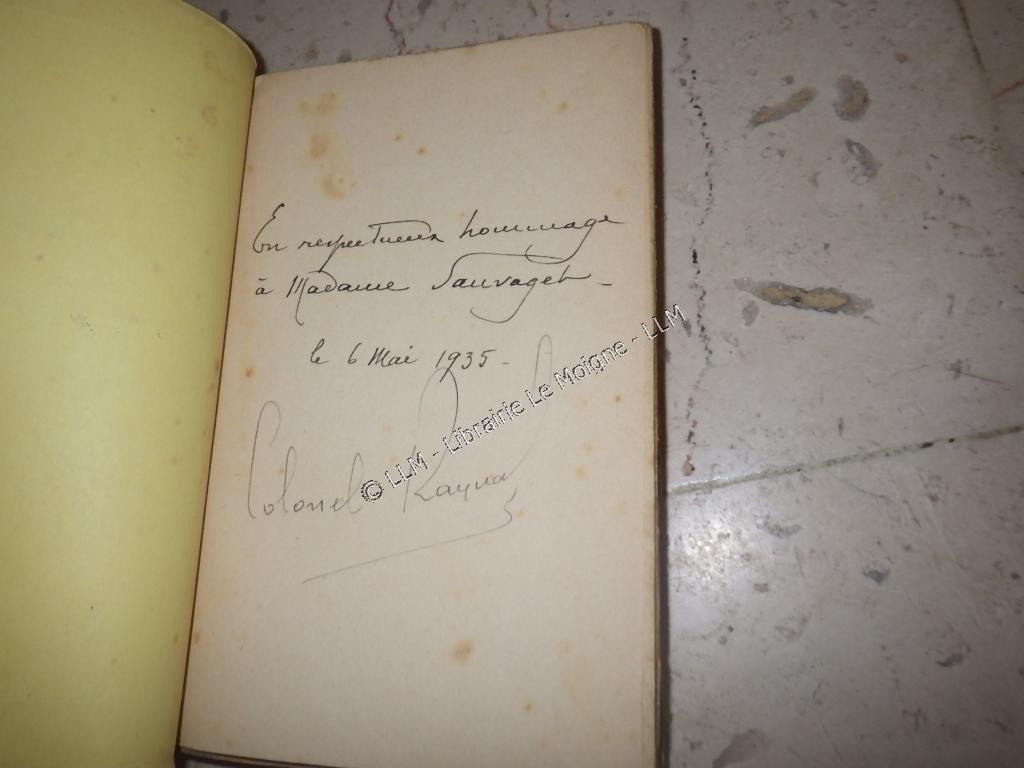 En respectueux hommage
à Madame Sauvaget -
le 6 Mai 1935 -
Colonel Raynal
© LLM - Librairie Le Moigne - LLM